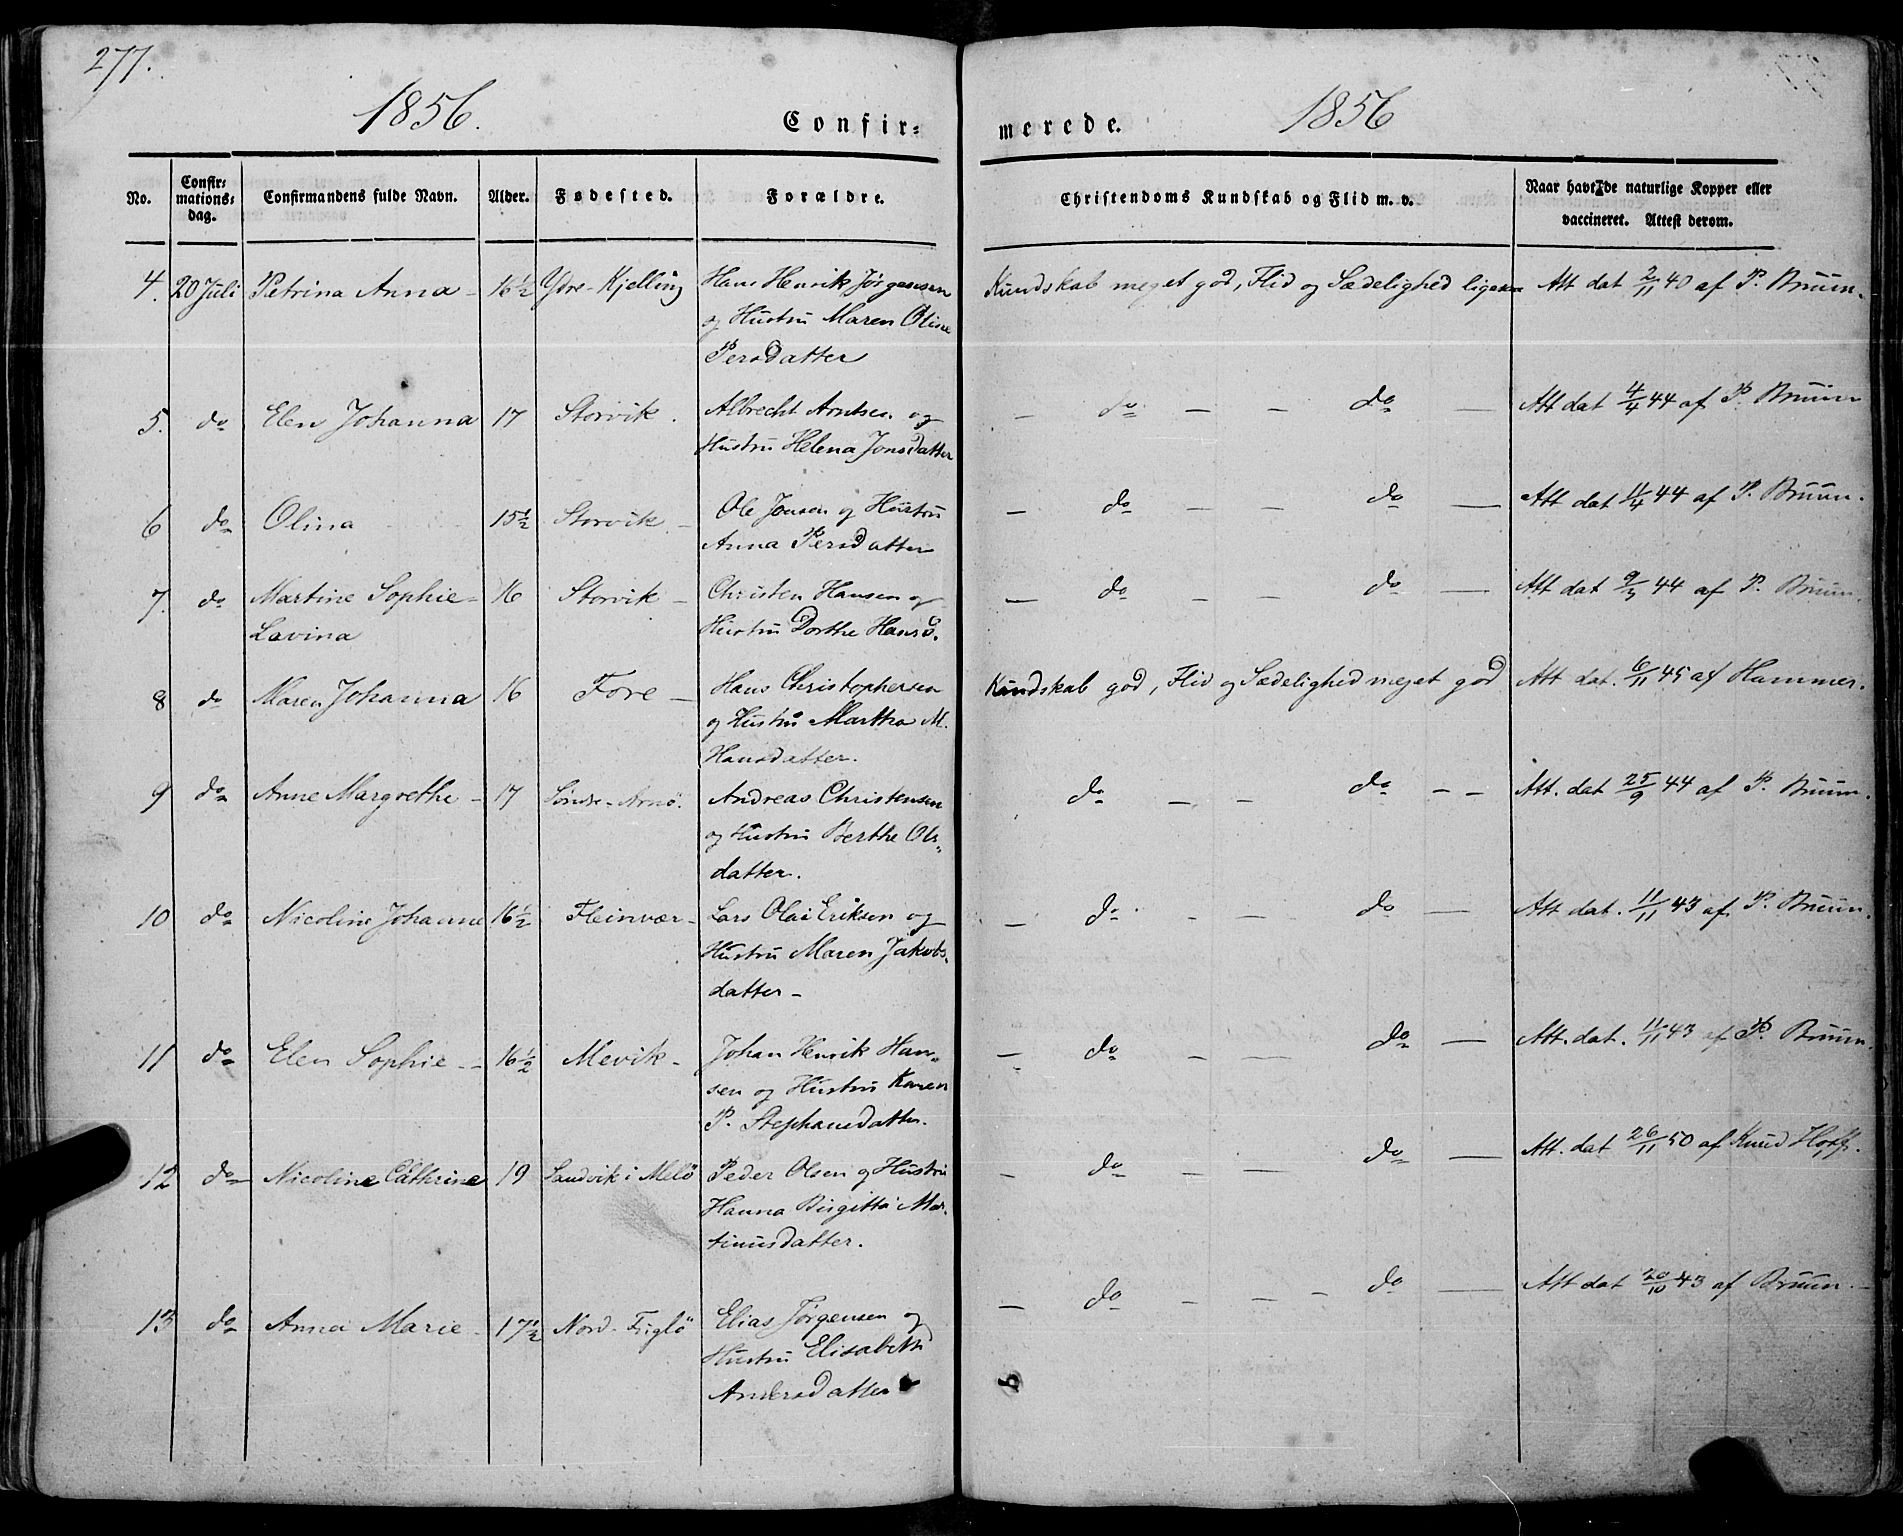 277.
1856.
Confir=
merede.
1856
No.
Confir=
mations=
dag.
Confirmandens fulde Navn.
Alder.
Fødested.
Forældre.
Christendoms Kundskab og Flid m. v.
Naar havt de naturlige Kopper eller
vaccineret. Attest derom.
4. 20 Juli Petrina Anna - 16½ Ydre-Kjelling Hans Henrik Jørgensen Kundskab meget god, Flid og Sædelighed ligesaa Att dat 2/11 40 af P. Bruun.
og Hustru Maren Oline
Persdatter
5. do Elen Johanna 17 Storvik. Albrecht Arntsen og - do - - do - Att dat 4/4 44 af P. Bruun
Hustru Helena Jonsdatter
6 do Olina 15½ Storvik - Ole Jonsen og Hustru - do - - do - Att dat 11/4 44 af P. Bruun.
Anna Persdatter
7. do Martine Sophie= 16 Storvik - Christen Hansen og - do - - do - Att dat 9/5 44 af P. Bruun.
Lavina Hustru Dorthe Hansd.
8 do Maren Johanna 16 Fore - Hans Christophersen Kundskab god, Flid og Sædelighed meget god Att dat. 6/11 45 af Hammer.
og Hustru Martha M.
Hansdatter.
9 do Anne Margrethe - 17 Søndre-Arnø. Andreas Christensen do - - do - - Att. dat 25/9 44 af P. Bruun.
og Hustru Berthe Ols-
datter.
10 do Nicoline Johanne 16½ Fleinvær- Lars Olai Eriksen og - do - - do - Att dat. 11/11 43 af P. Bruun.
Hustru Maren Jakobs-
datter -
11 do Elen Sophie - - 16½ Mevik- Johan Henrik Han- - do - - do - Att. dat. 11/11 43 af P. Bruun.
sen og Hustru Karen
P. Stephansdatter.
12 do Nicoline Cathrine 19 Sandvik i Melö Peder Olsen og Hustru - do - - do - Att. dat 26/11 50 af Knud Hoff.
Hanna Birgitta Mar-
tinusdatter.
13 do Anna Marie - 17½ Nord-Fuglö Elias Jørgensen og - do - - - do - Att dat 20/10 43 af Bruun.
Hustru Elisabeth
Andersdatter